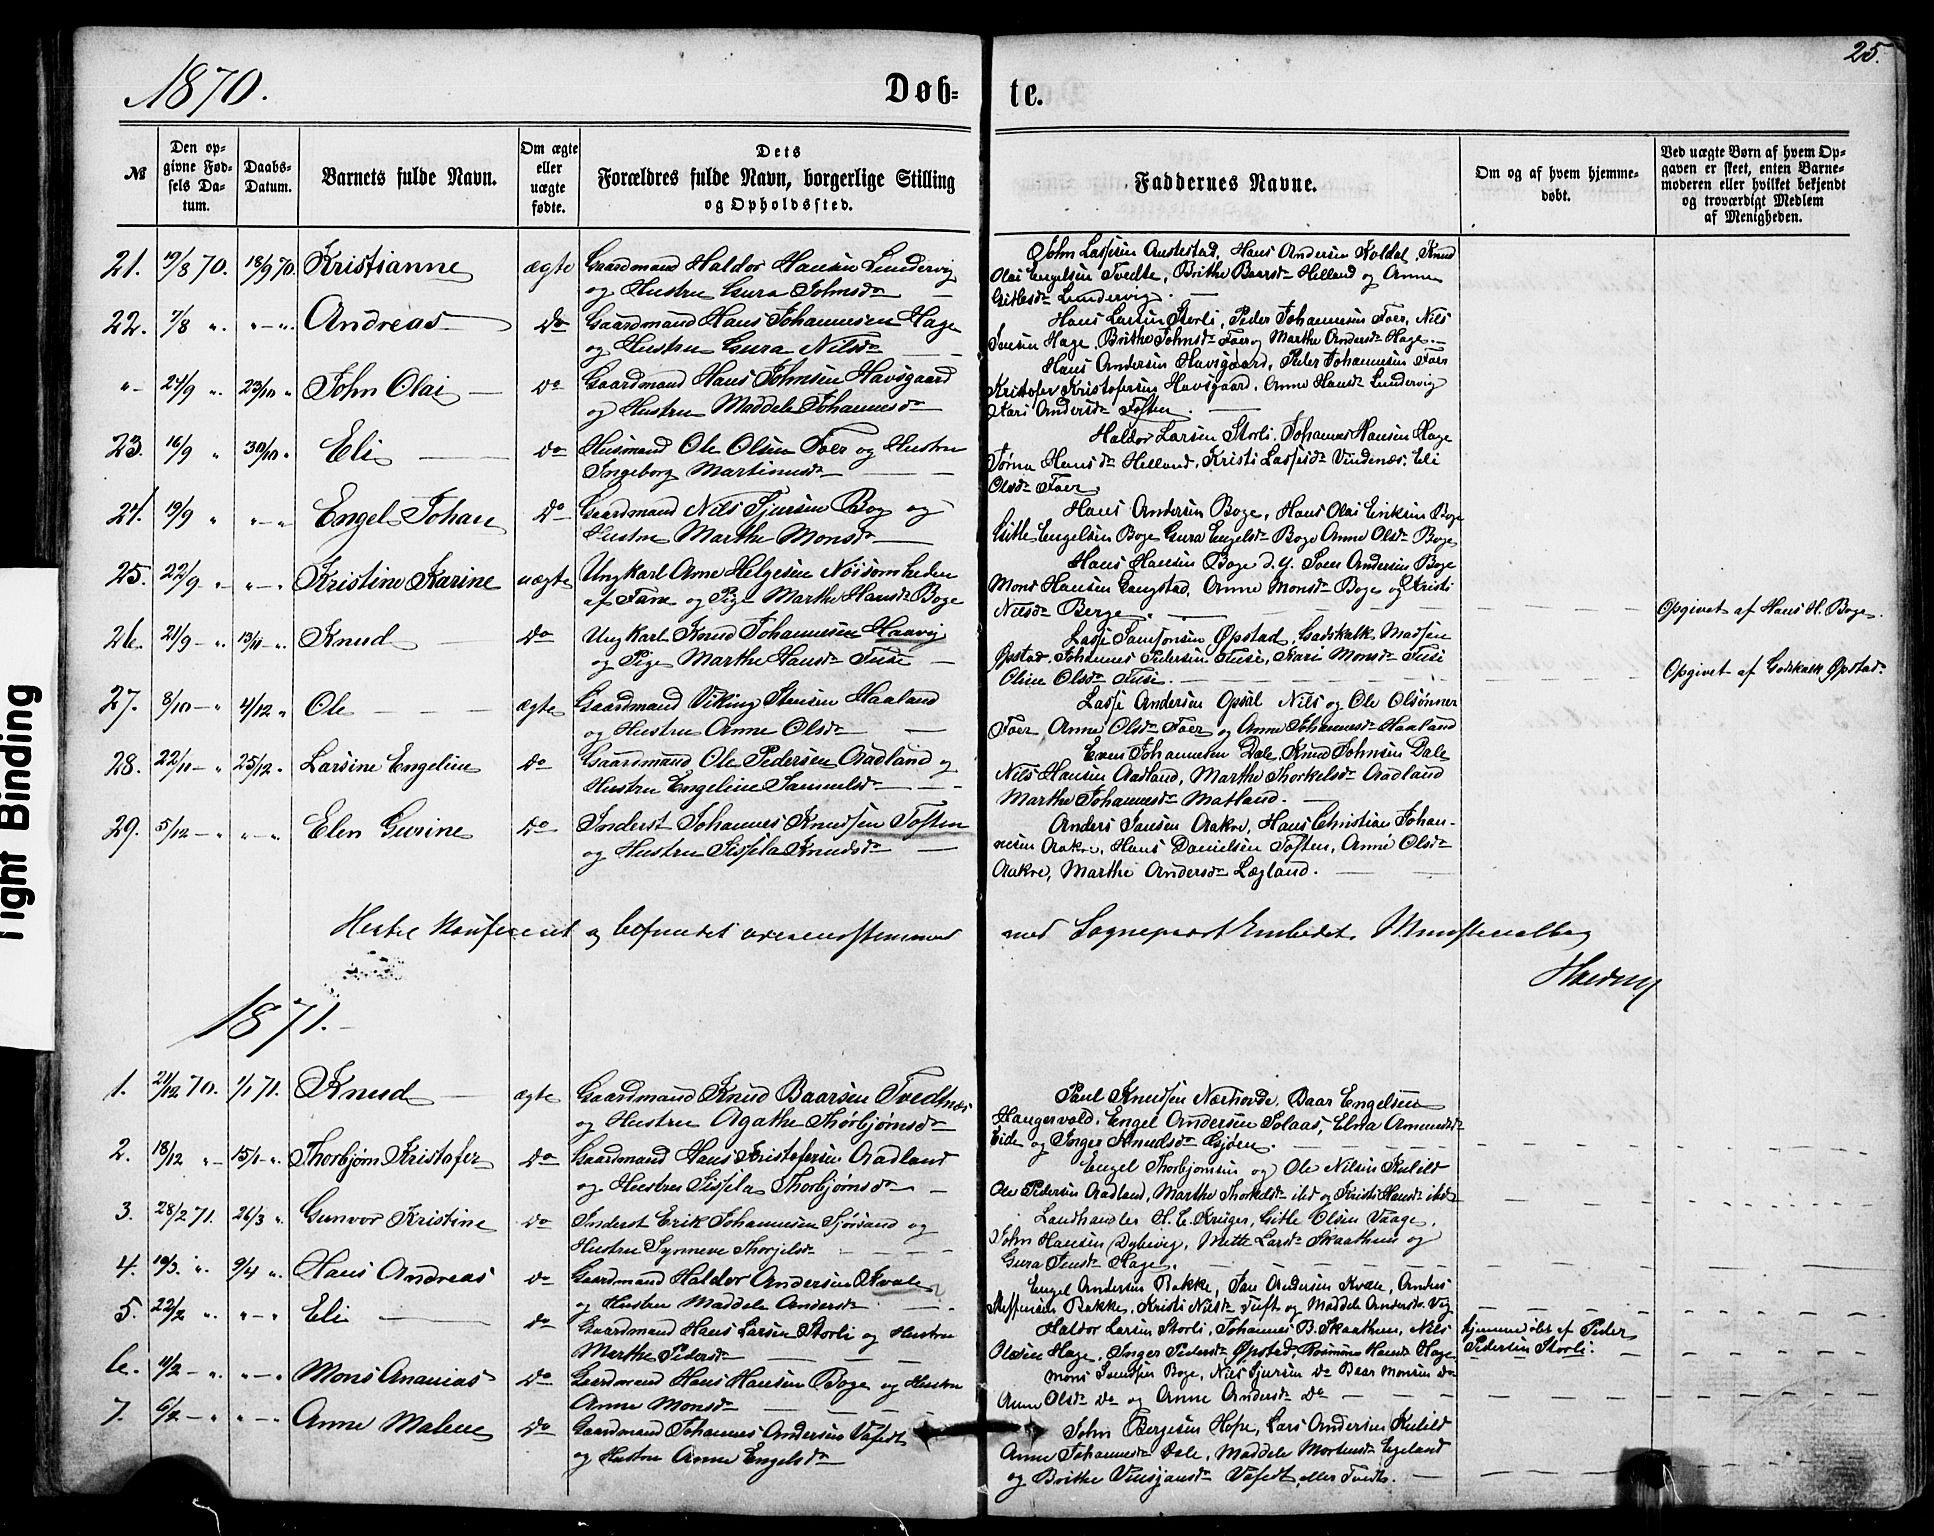 25.
1870. Døb= te.
№ Den op= givne Fød= sels Da= tum. Daabs= Datum. Barnets fulde Navn. Om ægte eller uægte fødte. Dets Forældres fulde Navn, borgerlige Stilling og Opholdssted. Faddernes Navne. Om og af hvem hjemme= døbt. Ved uægte Børn af hvem Op= gaven er skeet, enten Barne= moderen eller hvilket bekjendt og troværdigt Medlem af Menigheden.
21. 19/8 70. 18/9 70. Kristianne ægte Gaardmand Haldor Hansen Lundervig
og Hustru Gura Johnsdr
John Lassesen Austestad, Hans Andersen Koldal, Knud
Olai Engelsen Tvedte, Brithe Baarsdr Helland og Anne
Gitlesdr Lundervig.
22. 7/8 „ „ — „ Andreas Do Gaardmand Hans Johannesen Hage
og Hustru Gura Nilsdr
Hans Larsen Storli, Peder Johannesen Foer, Nils
Hage, Brithe Johnsdr Foer og Marthe Andersdr Hage.
„ 24/9 „ 23/10 „ John Olai Do Gaardmand Hans Johnsen Havsgaard
og Hustru Maddele Johannesdr
Hans Andersen Havsgaard, Peder Johannesen Foer
Kristofer Kristofersen Havsgaard, Anne Hansdr Lundervig
Kari Andersdr Toften.
23. 16/9 „ 30/10 „ Eli Do Husmand Ole Olsen Foer og Hustru
Ingeborg Martinusdr
Haldor Larsen Storli, Johannes Hansen Hage
Hansdr Helland, Kristi Lassesdr Vindenæs, Eli
Olsdr Foer.
24. 19/9 „ „ — „ Engel Johan Do Gaardmand Nils Sjursen Bog og
Hustru Marthe Monsdr
Hans Andersen Boge, Hans Olai Eriksen Boge
Gitle Engelsen Boge Gura Engelsdr Boge Anne Olsdr Boge
25. 22/9 „ „ — „ Kristine Karine uægte Ungkarl Arne Helgesen Nøisomheden
af Fane og Pige Marthe Hansdr Boge
Hans Hansen Boge d.y. Sven Andersen Boge
Mons Hansen Langstad, Anne Monsdr Boge og Kristi
Nilsdr Berge.
Opgivet af Hans H. Boge.
26. 21/9 — „ 13/11 — „ Knud Do Ungkarl Knud Johannesen Haavig
og Pige Marthe Hansdr Fuse
Lasse Samsonsen Øpstad, Godskalk Madsen
Øpstad, Johannes Pedersen Fuse, Kari Monsdr Fuse
Oline Olsdr Fuse.
Opgivet af Godskalk Øpstad.
27. 8/10 — „ 4/12 „ Ole ægte Gaardmand Viking Stensen Haaland
og Hustru Anne Olsdr
Lasse Andersen Opsal Nils og Ole Olsønner
Foer Anne Olsdr Foer og Anne Johannesdr Haaland
28. 22/11 — „ 25/12 „ Larsine Engeline Do Gaardmand Ole Pedersen Aadland og
Hustru Engeline Samuelsdr
Even Johannesen Dale, Knud Johnsen Dale
Nils Hansen Aadland, Marthe Thorkelsdr Aadland
Marthe Johannesdr Matland.
29. 5/12 — „ „ — „ Elen Gurine Do Inderst Johannes Knudsen Toften
og Hustru Sissela Knudsdr
Anders Jansen Aakre, Hans Christian Johan-
nesen Aakre, Hans Danielsen Toften, Anne Olsdr
Aakre, Marthe Andersdr Lægland.
og befundet overensstemmende med Sognepræst Embedets
1871.
1. 21/12 70. 1/1 71. Knud ægte Gaardmand Knud Baarsen Tvedtnæs
og Hustru Agathe Thorbjørnsdr
Paul Knudsen Nærhovde, Baar Engelsen
Haugervold, Engel Andersen Solaas, Elna Amundsdr
Eide og Inger Knudsdr Gjøen.
2. 18/12 „ 15/1 — „ Thorbjørn Kristofer Do Gaardmand Hans Kristofersen Aadland
og Hustru Sissela Thorbjørnsdr
Engel Thorbjørnsen og Ole Nilsen Kulild
Ole Pedersen Aadland, Marthe Thorkelsdr ibd og Kristi Hansdr ibd
3. 28/2 71. 26/3 „ Gunvor Kristine Do Inderst Erik Johannesen Sjøsand og
Hustru Synneve Thorgilsdr
Landhandler H. C. Krüger, Gitle Olsen Vaage,
John Hansen Dybevig, Mette Larsdr Skaathun og
Gura Hage.
4. 10/3. „ 9/4 „ Hans Andreas Do Gaardmand Haldor Andersen Kvale
og Hustru Maddele Andersdr
Engel Andersen Bakke, Jan Andersen Kvale, Anders
Steffensen Bakke, Kristi Nilsdr Tuft og Maddele Andersdr Vig
5. 22/2 „ „ — „ Eli Do Gaardmand Hans Larsen Storli og Hustru
Marthe Pedersdr
Haldor Larsen Storli, Johannes B. Skaathun, Nils
Olsen Hage, Inger Pedersdr Øpstad, Hansdr Hage
hjemmedøbt af Peder
Pedersen Storli.
6. 11/2 — „ „ — „ Mons Ananias Do Gaardmand Hans Hansen Boge og Hustru
Anne Monsdr
Mons Boge, Nils Sjursen Do Baar Monsen Do
Anne Olsdr Do og Anne Andersdr Do
7. 6/2 — „ „ — „ Anne Malene Do Gaardmand Johannes Andersen Vafedt
og Hustru Anne Engelsdr
John Børgesen Hope, Lars Andersen Kulild
Anne Johannesdr Dale, Maddele Mortensdr Egeland
og Brithe Vafedt, eller Tvedte.
Tight Binding